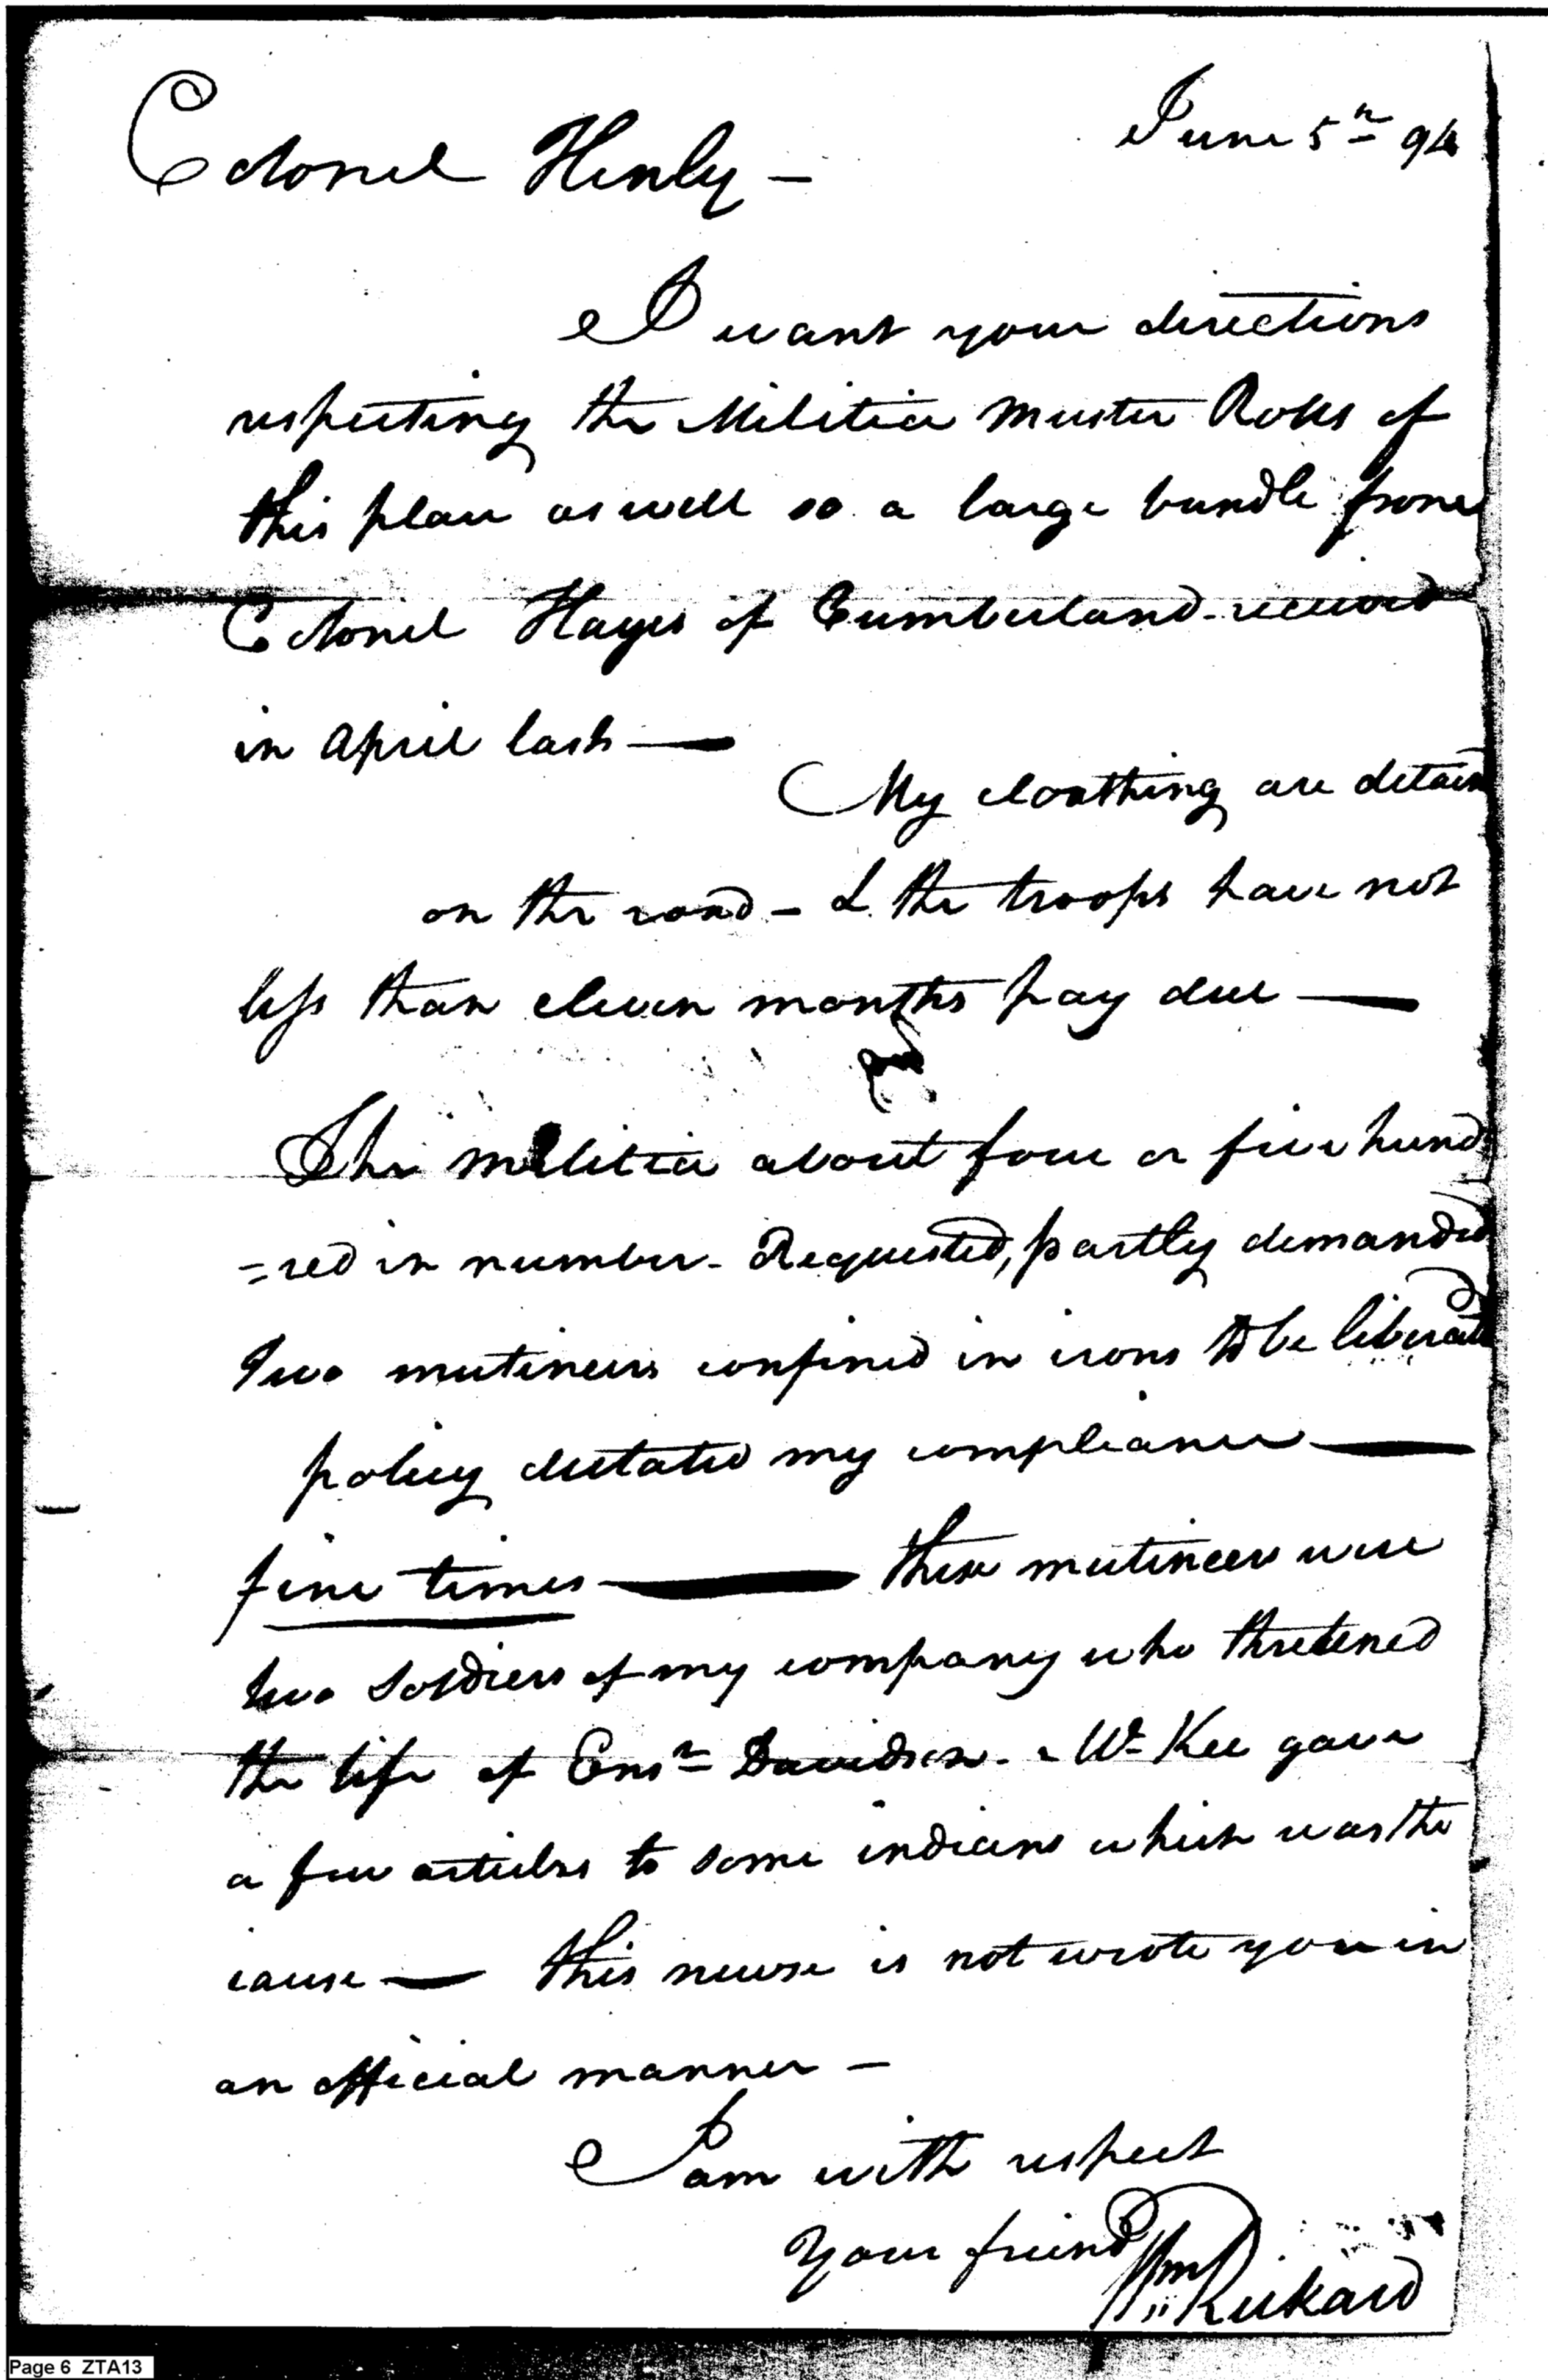 June 5th 94
Colonel Henly —
I want your directions
respecting the Militia muster Rolls of
this place as well as a large bundle from
Colonel Hayes of Cumberland received
in April last —
My cloathing are detain
on the road — & the troops have not
less than eleven months pay due —
The militia about four or five hund
=red in number - Requested, partly demanded
two mutineers confined in irons to be liberated
policy dictated my compliance —
fine times — these mutineers were
two soldiers of my company who thretened
the life of Ensn Davidson. - Kee gave
a few articles to some indians which was the
cause — this newse is not wrote you in
an official manner —
I am with respect
Your friend
Wm Rickard
Page 6 ZTA13